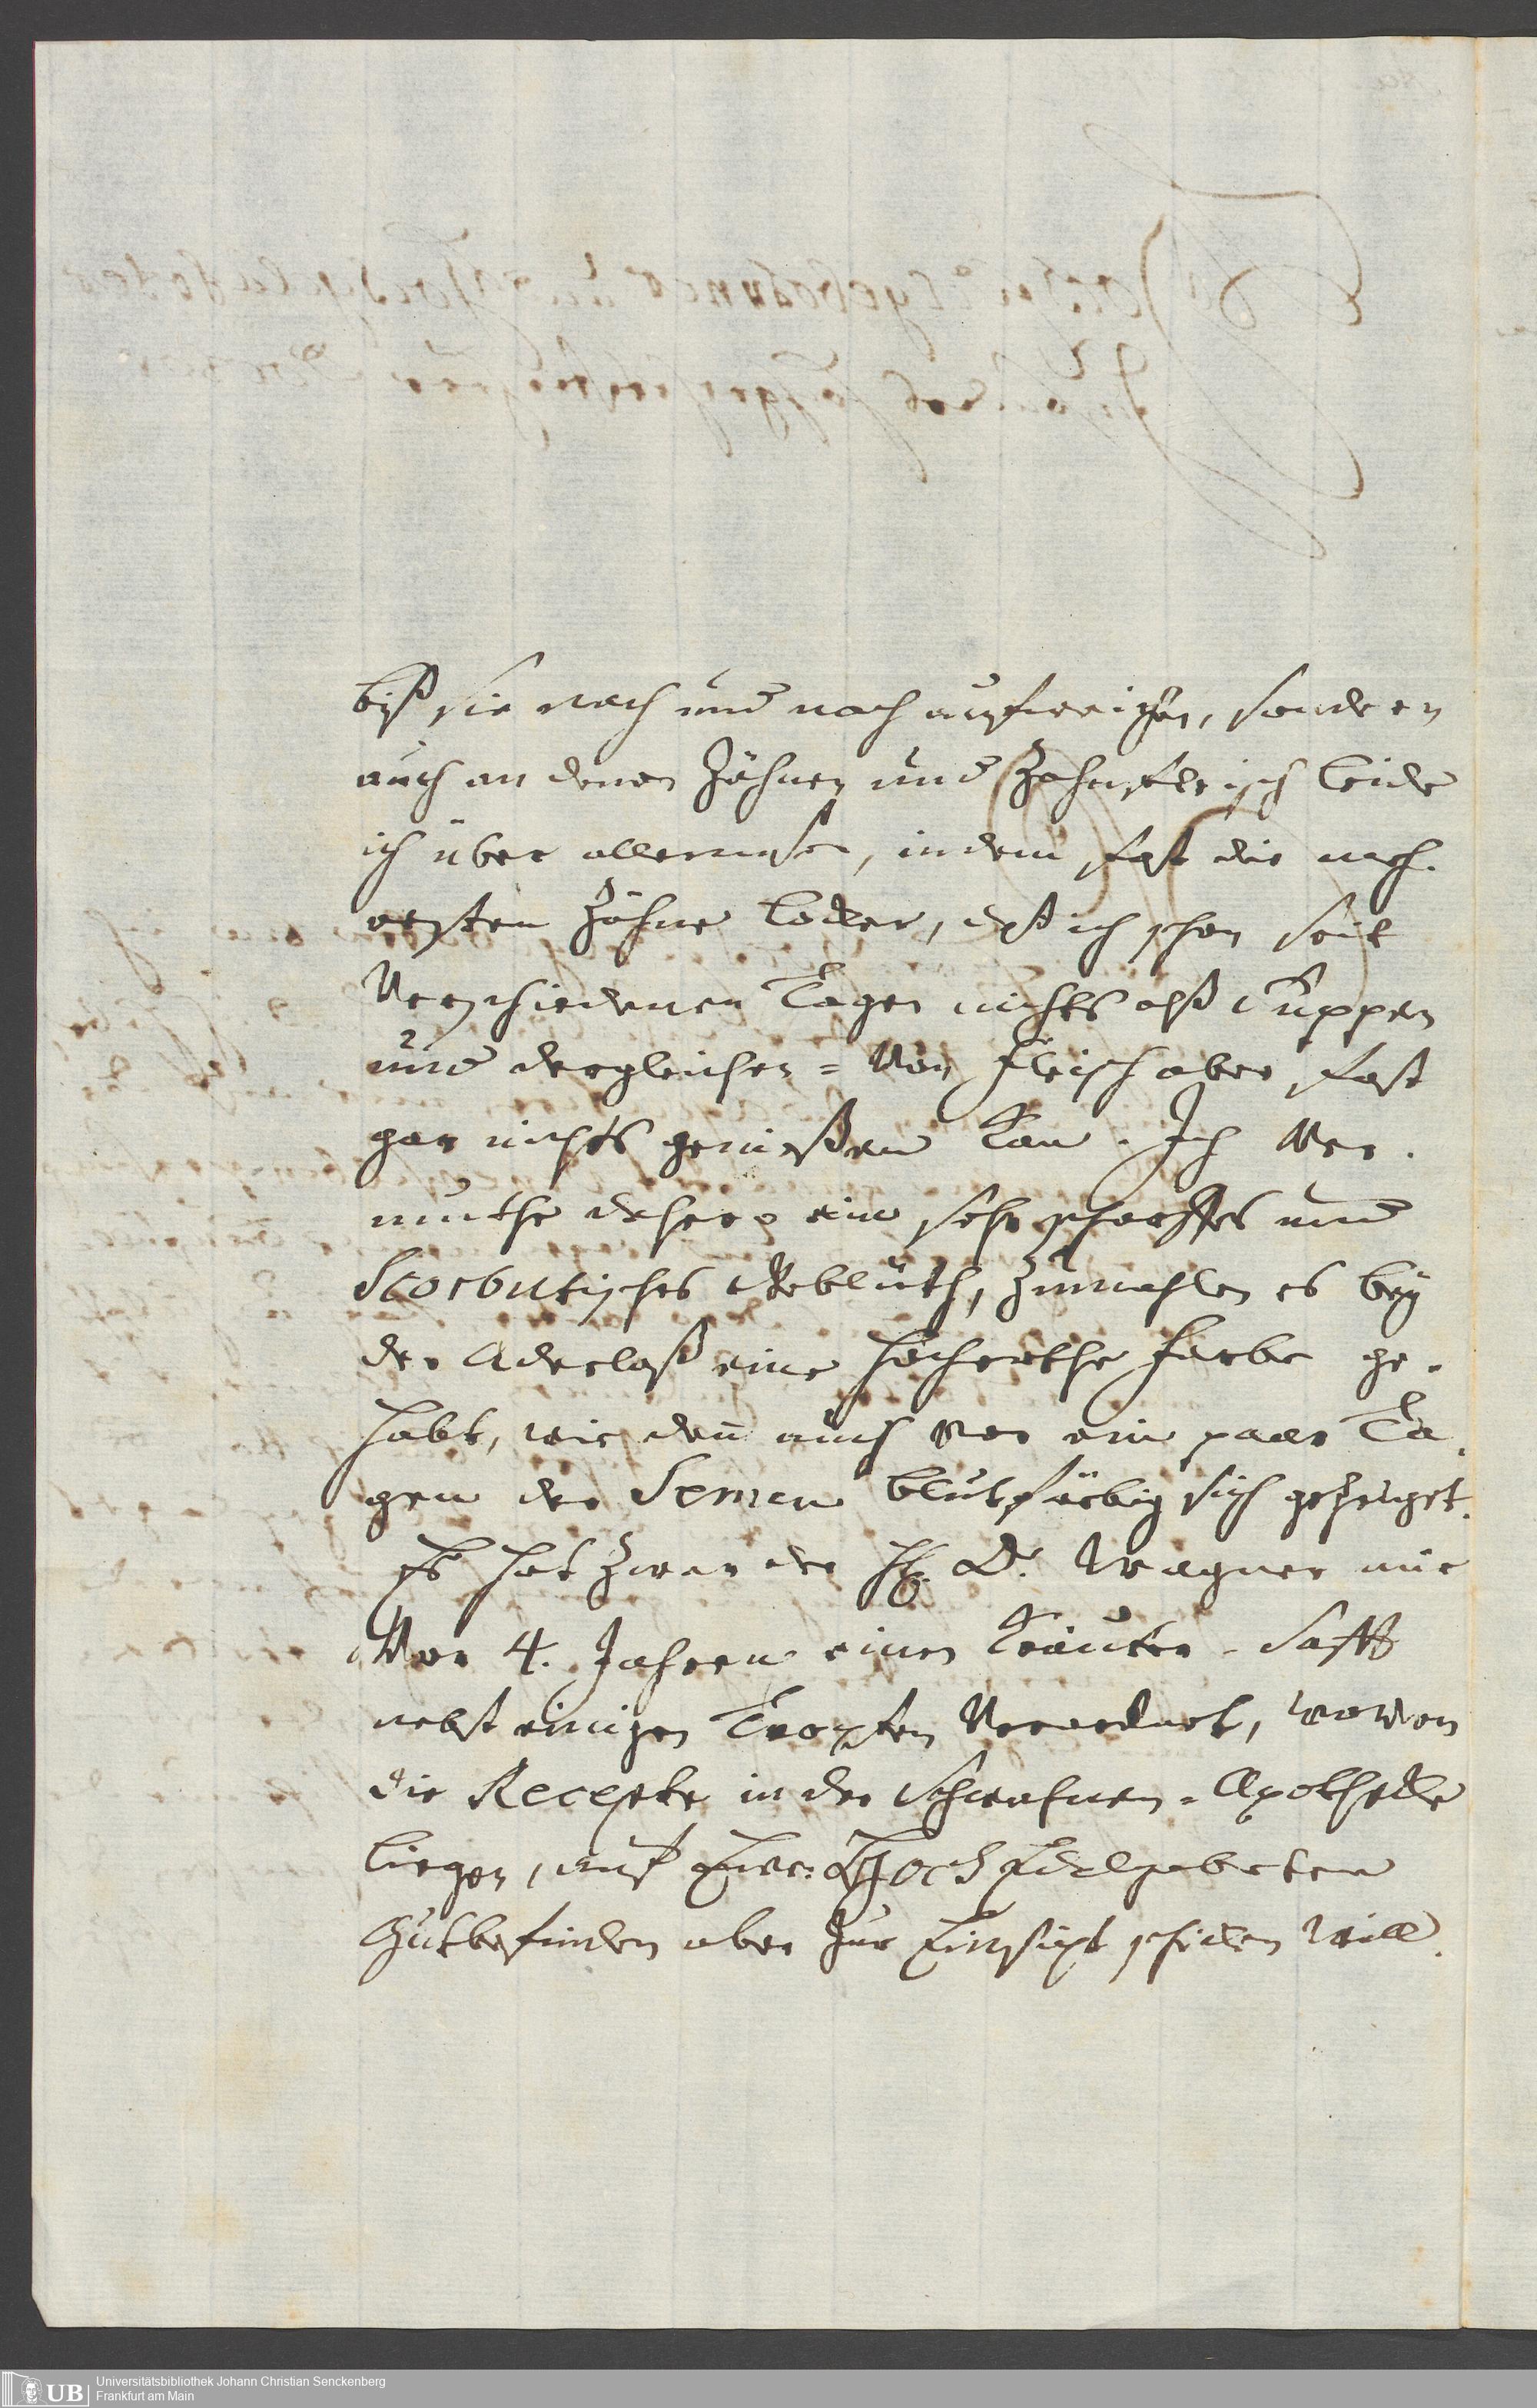 biß sie nach und nach aufweichen, sondern
auch an denen Zähnen und Zahnfleisch leide
ich über allermaßen, indem fast die meh-
resten Zähne locker, daß ich schon seit
Verschiedenen Tagen nichts alß Suppen
und dergleichen = Von Fleisch aber fast
gar nichts genießen kan. Ich Ver-
muthe dahero ein sehr scharffes und
Scorbutisches Geblüth, zumahlen es bey
der Aderlaß eine hochrothe Farbe ge-
habt, wie deñ auch vor ein paar Ta-
gen der Semen blutfärbig sich gezeiget.
Es hat zwar der H. D. Wagner mir
Vor 4. Jahren einen Kräuter-Safft
nebst einigen Tropfen Verordnet, wovon
die Recepte in der Schwahnen-Apothecke
liegen, auf Euer HochEdelgebohren
Gutbefinden aber zur Einsicht schicken will.
UB
Universitätsbibliothek Johann Christian Senckenberg
Frankfurt am Main